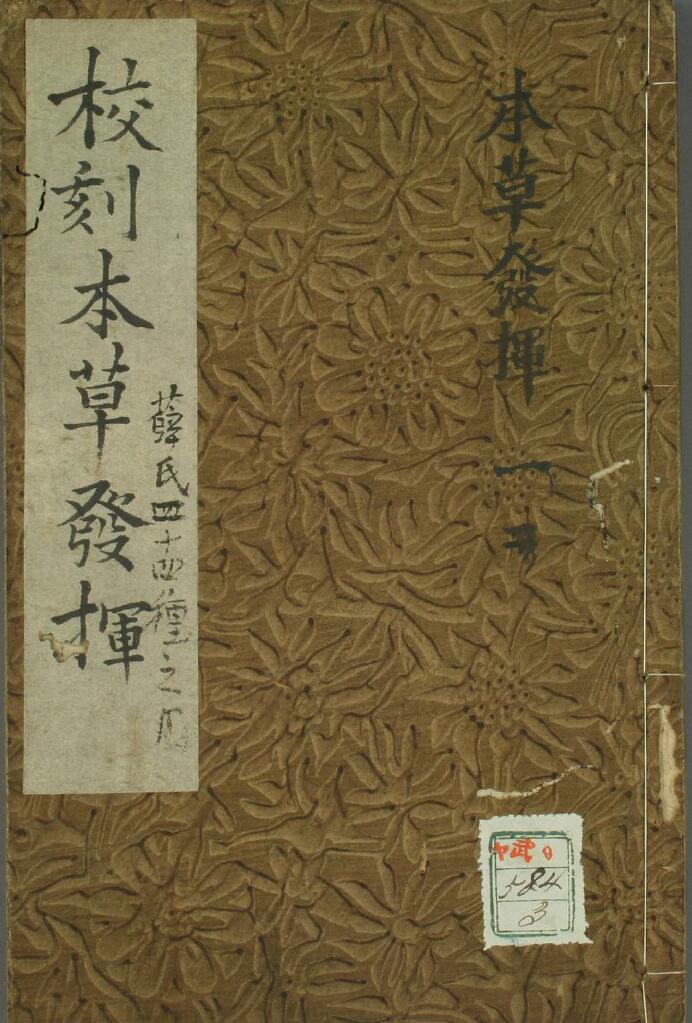 本草發揮 一
校刻本草發揮
薛氏四十四種之内
ヤ武 9
584
3